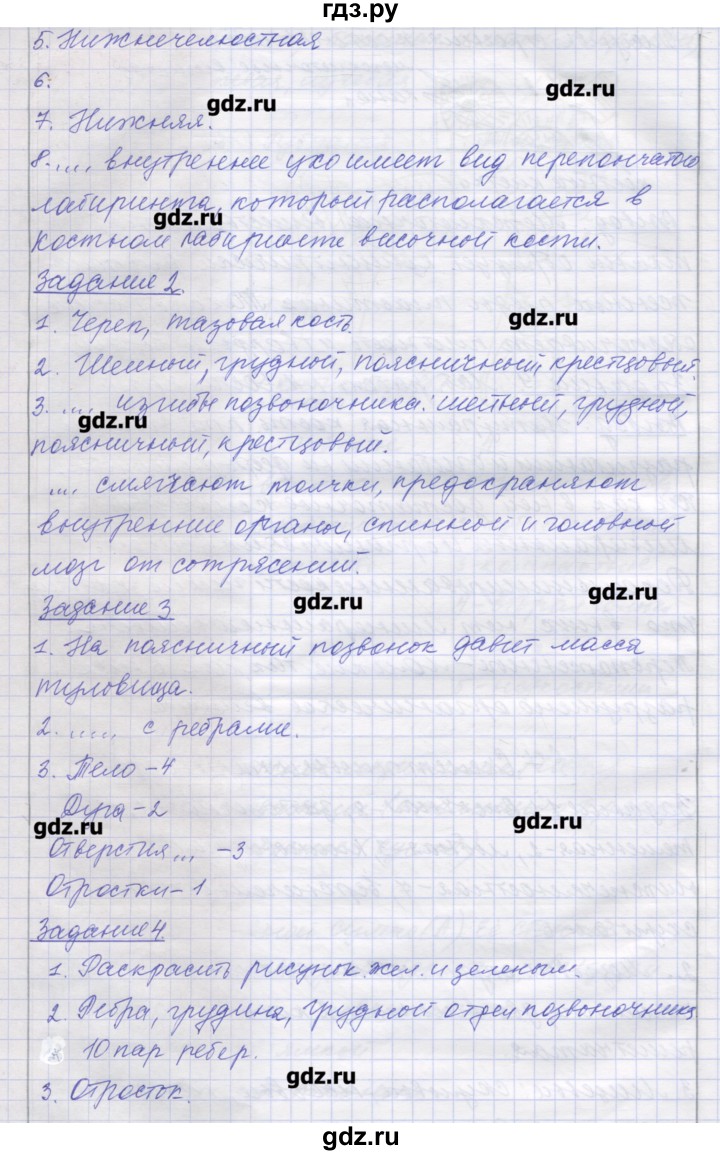 гдз.ру
5. Нижнечелюстная
6.
gdz.ru gdz.ru
7. Нижняя.
8. .... внутреннее ухо имеет вид перепончатого
лабиринта, который располагается в
gdz.ru
костном лабиринте височной кости.
Задание 2.
1. Череп, тазовая кость.
gdz.ru
2. Шейный, грудной, поясничный, крестцовый.
3. .... изгибы позвоночника: шейный, грудной,
gdz.ru
поясничный, крестцовый.
.... смягчают толчки, предохраняют
внутренние органы, спинной и головной
мозг от сотрясений.
gdz.ru gdz.ru
Задание 3
1. На поясничный позвонок давит масса
туловища.
2. ..... с ребрами.
3. Тело - 4
Дуга - 2
gdz.ru gdz.ru
Отверстия ... - 3
Отростки - 1
Задание 4
1. Раскрасить рисунок жел. и зеленым.
2. Ребра, грудина, грудной отдел позвоночника
10 пар ребер.
gdz.ru
3. Отросток.
gdz.ru